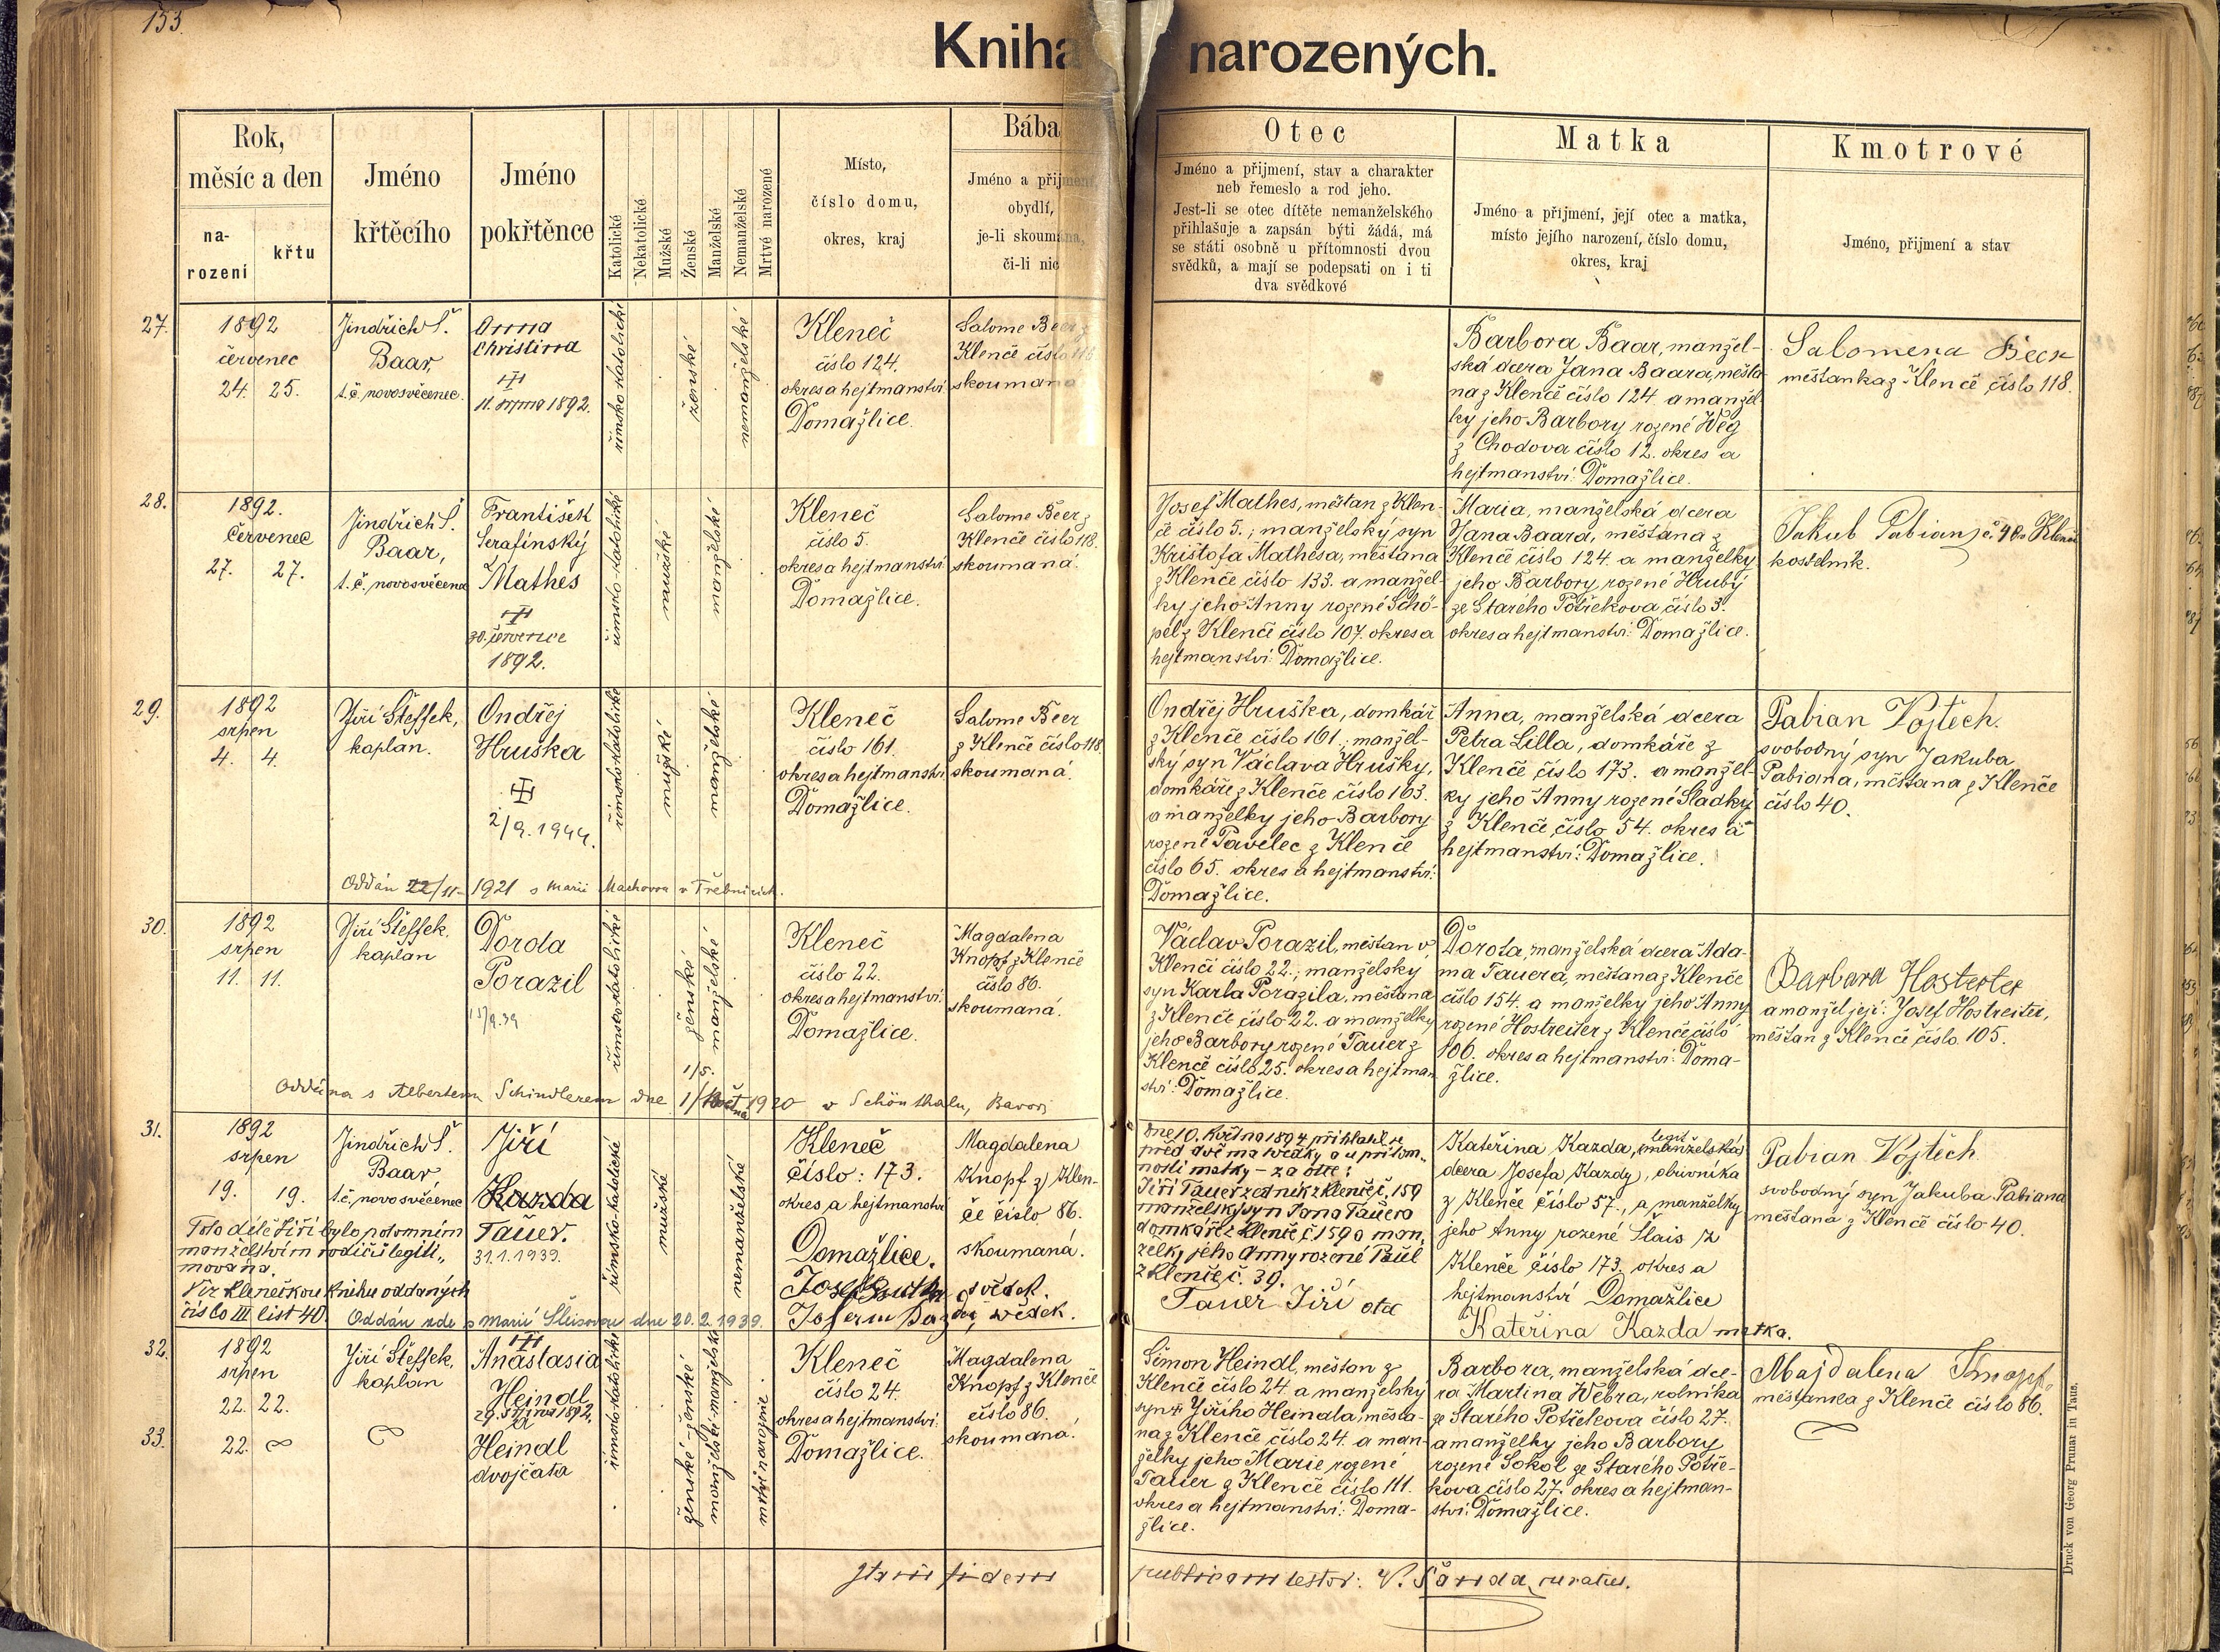 153.
Kniha narozených.
Rok,
měsíc a den
na-
rození
křtu
Jméno
křtěcího
Jméno
pokřtěnce
Katolické
Nekatolické
Mužské
Ženské
Manželské
Nemanželské
Mrtvě narozené
Místo,
číslo domu,
okres, kraj
Bába
Jméno a přijmení,
obydlí,
je-li skoumána,
či-li nic
Otec
Jméno a přijmení, stav a charakter
neb řemeslo a rod jeho.
Jest-li se otec dítěte nemanželského
přihlašuje a zapsán býti žádá, má
se státi osobně u přítomnosti dvou
svědků, a mají se podepsati on i ti
dva svědkové
Matka
Jméno a přijmení, její otec a matka,
místo jejího narození, číslo domu,
okres, kraj
Kmotrové
Jméno, přijmení a stav
27.
1892
červenec
24. 25.
Jindřich Š.
Baar,
t.č. novosvěcenec.
Anna
Christina
11. srpna 1892.
římsko-katolické
ženské
nemanželské
Kleneč
číslo 124.
okres a hejtmanství:
Domažlice.
Salome Beer z
Klenče číslo 118
skoumaná
Barbora Baar, manžel-
ská dcera Jana Baara, měšťa-
na z Klenče číslo 124. a manžel-
ky jeho Barbory rozené Weg
z Chodova číslo 12. okres a
hejtmanství: Domažlice.
Salomena Beer
měšťanka z Klenče číslo 118.
28.
1892.
červenec
27. 27.
Jindřich Š.
Baar,
t.č. novosvěcenec
František
Serafínský
Mathes
30. července
1892.
římsko-katolické
mužské
manželské
Kleneč
číslo 5.
okres a hejtmanství:
Domažlice.
Salome Beer z
Klenče číslo 118.
skoumaná.
Josef Mathes, měšťan z Klen-
če číslo 5.; manželský syn
Krištofa Mathesa, měšťana
z Klenče číslo 133. a manžel-
ky jeho Anny rozené Schö-
pel z Klenče číslo 107. okres a
hejtmanství: Domažlice.
Maria, manželská dcera
Jana Baara, měšťana z
Klenče číslo 124. a manželky
jeho Barbory, rozené Hrubý
ze Starého Postřekova číslo 3.
okres a hejtmanství: Domažlice.
Jakub Pabian z č. 40 Klenče
kostelník.
29.
1892
srpen
4. 4.
Jiří Šteffek,
kaplan.
Ondřej
Hruška
2/9. 1944.
římsko-katolické
mužské
manželské
Kleneč
číslo 161.
okres a hejtmanství
Domažlice.
Salome Beer
z Klenče číslo 118
skoumaná.
Ondřej Hruška, domkář
z Klenče číslo 161.; manžel-
ský syn Václava Hrušky,
domkáře z Klenče číslo 163.
a manželky jeho Barbory
rozené Pavelec z Klenče
číslo 65. okres a hejtmanství:
Domažlice.
Anna, manželská dcera
Petra Lilla, domkáře z
Klenče číslo 173. a manžel-
ky jeho Anny rozené Sladký
z Klenče číslo 54. okres a
hejtmanství: Domažlice.
Pabian Vojtěch.
svobodný syn Jakuba
Pabiana, měšťana z Klenče
číslo 40.
Oddán 22/11. 1921 s Marií Machovou v Třebnicích.
30.
1892
srpen
11. 11.
Jiří Šteffek,
kaplan
Dorota
Porazil
římsko-katolické
ženské
manželské
Kleneč
číslo 22.
okres a hejtmanství:
Domažlice.
Magdalena
Knopf z Klenče
číslo 86.
skoumaná.
Václav Porazil, měšťan v
Klenči číslo 22.; manželský
syn Karla Porazila, měšťana
z Klenče číslo 22. a manželky
jeho Barbory rozené Tauer z
Klenče číslo 25. okres a hejtman-
ství: Domažlice.
Dorota, manželská dcera Ada-
ma Tauera, měšťana z Klenče
číslo 154. a manželky jeho Anny
rozené Hostreiter z Klenče číslo
106. okres a hejtmanství: Doma-
žlice.
Barbara Hosterter
a manžel její: Josef Hostreiter,
měšťan z Klenče číslo 105.
1/5.
Oddána s Albertem Schindlerem dne 1/ května 1920 v Schönthalu, Bavor.
31.
1892
srpen
19. 19.
Jindřich Š.
Baar,
t.č. novosvěcenec
Jiří
Kazda
Tauer.
31.1.1939.
Toto dítě Jiří bylo potomním
manželstvím rodičů legiti-
mováno.
Viz klenečskou knihu oddaných
číslo III list 40.
římsko-katolické
mužské
nemanželské
Kleneč
číslo: 173.
okres a hejtmanství
Domažlice.
Josef svědek.
svědek.
Magdalena
Knopf z Klen-
če číslo 86.
skoumaná.
Dne 10. května 1894 přihlásil se
před dvěma svědky a u přítom-
nosti matky – za otce:
Jiří Tauer zedník z Klenče č. 159
manželský syn Jana Tauera
domkáře z Klenče č 159 a man-
želky jeho Anny rozené
z Klenče č. 39.
Tauer Jiří otec
Kateřina Kazda, legit. manželská
dcera Josefa Kazdy, obuvníka
z Klenče číslo 57., a manželky
jeho Anny rozené Slais z
Klenče číslo 173. okres a
hejtmanství Domažlice
Kateřina Kazda matka.
Pabian Vojtěch.
svobodný syn Jakuba Pabiana
měšťana z Klenče číslo 40.
Oddán zde s Marií Šleisovou dne 20.2.1939.
32.
1892
srpen
22. 22.
Jiří Šteffek,
kaplan
Anastasia
Heindl
29. srpna 1892.
a
33.
22.
Heindl
dvojčata
římsko-katolické
ženské – ženské
manželské – manželské
mrtvě narozené
Kleneč
číslo 24.
okres a hejtmanství:
Domažlice.
Magdalena
Knopf z Klenče
číslo 86.
skoumaná.
Šimon Heindl, měšťan z
Klenče číslo 24. a manželský
syn Jiřího Heindla, měšťa-
na z Klenče číslo 24. a man-
želky jeho Marie rozené
Tauer z Klenče číslo 111.
okres a hejtmanství: Doma-
žlice.
Barbora, manželská dce-
ra Martina Webra, rolníka
ze Starého Postřekova číslo 27.
a manželky jeho Barbory
rozené Sokol ze Starého Postře-
kova číslo 27. okres a hejtman-
ství: Domažlice.
Majdalena Knopf
měšťanka z Klenče číslo 86.
fidem publicam testor: V. Šanda, curatus.
Druck von Georg Prunar in Taus.